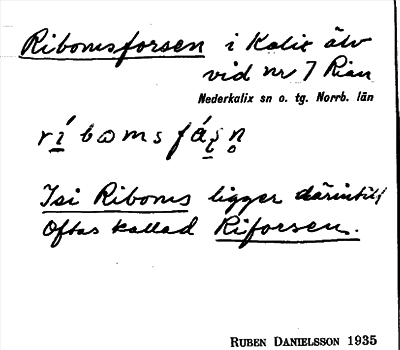 Ribomsforsen i Kalix älv
vid nr 7 Rian
Nederkalix sn o. tg. Norrb. län
Isi Riboms ligger därintill
Oftas kallad Riforsen.
RUBEN DANIELSSON 1935